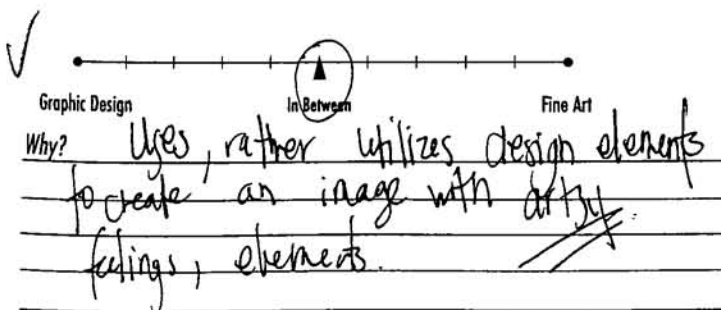 Graphic Design In Between Fine Art
Why? Uses, rather utilizes design elements
to create an image with artsy
feelings, elements.